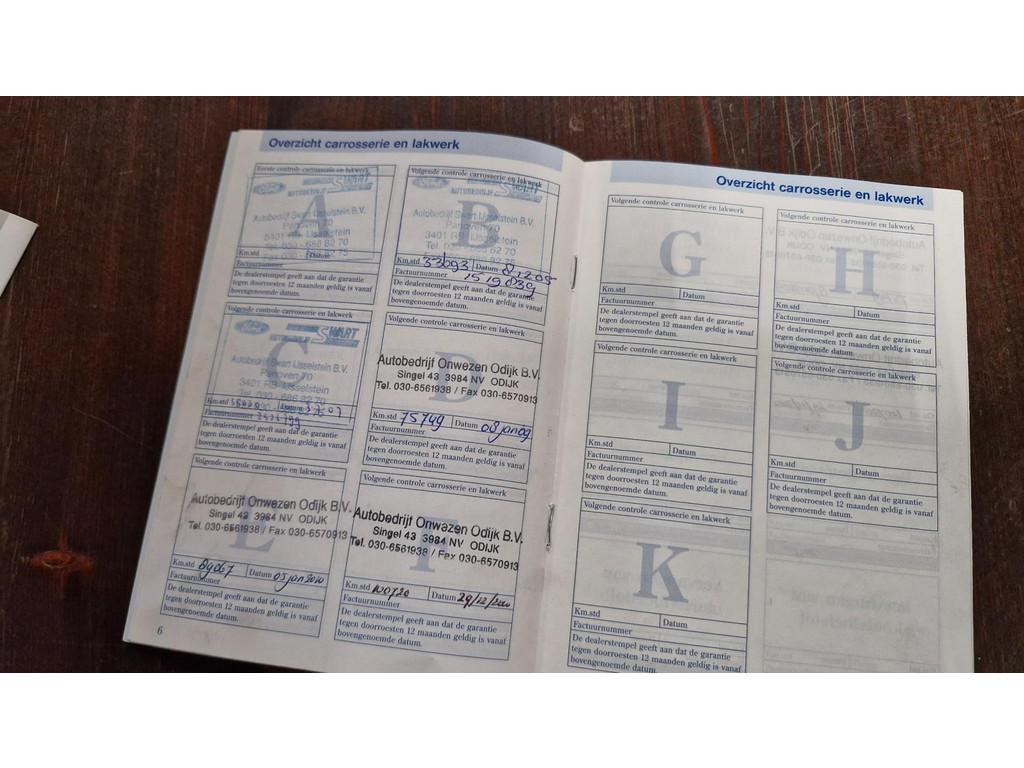 Overzicht carrosserie en lakwerk
Eerste controle carrosserie en lakwerk
A
Ford
SWART
AUTOBEDRIJF
Autobedrijf Swart IJsselstein B.V.
Panoven 70
3401 RB IJsselstein
Km.std
Datum
Factuurnummer
De dealerstempel geeft aan dat de garantie
tegen doorroesten 12 maanden geldig is vanaf
bovengenoemde datum.
Volgende controle carrosserie en lakwerk
B
Ford
SWART
AUTOBEDRIJF
Autobedrijf Swart IJsselstein B.V.
Panoven 70
3401 RB IJsselstein
Km.std 33693 Datum
Factuurnummer 1519839
De dealerstempel geeft aan dat de garantie
tegen doorroesten 12 maanden geldig is vanaf
bovengenoemde datum.
Volgende controle carrosserie en lakwerk
C
Ford
SWART
Autobedrijf Swart IJsselstein B.V.
Panoven 70
3401 RB IJsselstein
Km.std
Datum
Factuurnummer
De dealerstempel geeft aan dat de garantie
tegen doorroesten 12 maanden geldig is vanaf
bovengenoemde datum.
Volgende controle carrosserie en lakwerk
D
Autobedrijf Onwezen Odijk B.V.
Singel 43 3984 NV ODIJK
Tel. 030-6561938 / Fax 030-6570913
Km.std 75749 Datum 08 jan 09
Factuurnummer
De dealerstempel geeft aan dat de garantie
tegen doorroesten 12 maanden geldig is vanaf
bovengenoemde datum.
Volgende controle carrosserie en lakwerk
E
Autobedrijf Onwezen Odijk B.V.
Singel 43 3984 NV ODIJK
Tel. 030-6561938 / Fax 030-6570913
Km.std 89067 Datum 05 jan 2010
Factuurnummer
De dealerstempel geeft aan dat de garantie
tegen doorroesten 12 maanden geldig is vanaf
bovengenoemde datum.
Volgende controle carrosserie en lakwerk
F
Autobedrijf Onwezen Odijk B.V.
Singel 43 3984 NV ODIJK
Tel. 030-6561938 / Fax 030-6570913
Km.std 100720 Datum
Factuurnummer
De dealerstempel geeft aan dat de garantie
tegen doorroesten 12 maanden geldig is vanaf
bovengenoemde datum.
6
Overzicht carrosserie en lakwerk
Volgende controle carrosserie en lakwerk
G
Km.std
Datum
Factuurnummer
De dealerstempel geeft aan dat de garantie
tegen doorroesten 12 maanden geldig is vanaf
bovengenoemde datum.
Volgende controle carrosserie en lakwerk
H
Km.std
Datum
Factuurnummer
De dealerstempel geeft aan dat de garantie
tegen doorroesten 12 maanden geldig is vanaf
bovengenoemde datum.
Volgende controle carrosserie en lakwerk
I
Km.std
Datum
Factuurnummer
De dealerstempel geeft aan dat de garantie
tegen doorroesten 12 maanden geldig is vanaf
bovengenoemde datum.
Volgende controle carrosserie en lakwerk
J
Km.std
Datum
Factuurnummer
De dealerstempel geeft aan dat de garantie
tegen doorroesten 12 maanden geldig is vanaf
bovengenoemde datum.
Volgende controle carrosserie en lakwerk
K
Km.std
Datum
Factuurnummer
De dealerstempel geeft aan dat de garantie
tegen doorroesten 12 maanden geldig is vanaf
bovengenoemde datum.